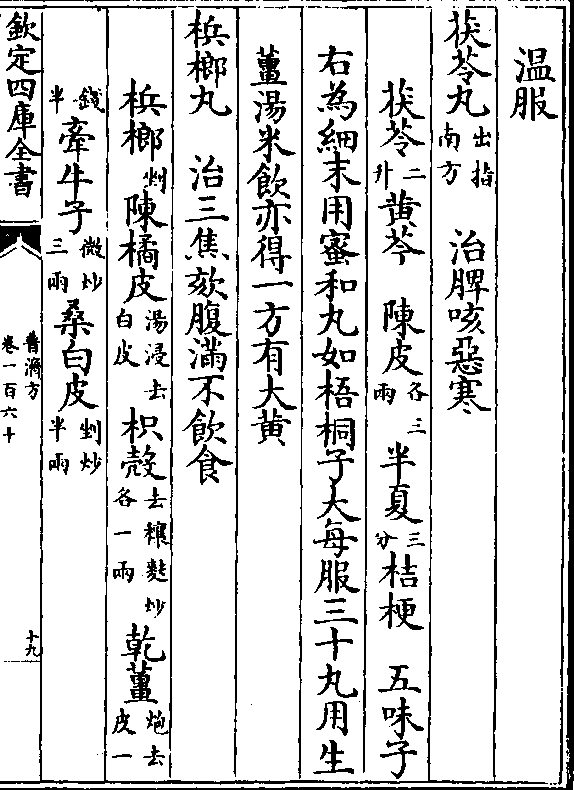 温服
茯苓丸出指南方　治脾咳惡寒
茯苓二升　黄芩　陳皮各三兩　半夏三分　桔梗　五味子
右為細末用蜜和丸如梧桐子大每服三十丸用生
薑湯米飲亦得一方有大黄
梹榔丸　治三焦欬腹滿不飲食
梹榔剉　陳橘皮湯浸去白皮　枳殻去穰麩炒各一兩　乾薑炮去皮一
錢半　牽牛子微炒三兩　桑白皮剉炒半兩
欽定四庫全書　普濟方卷一百六十　十九